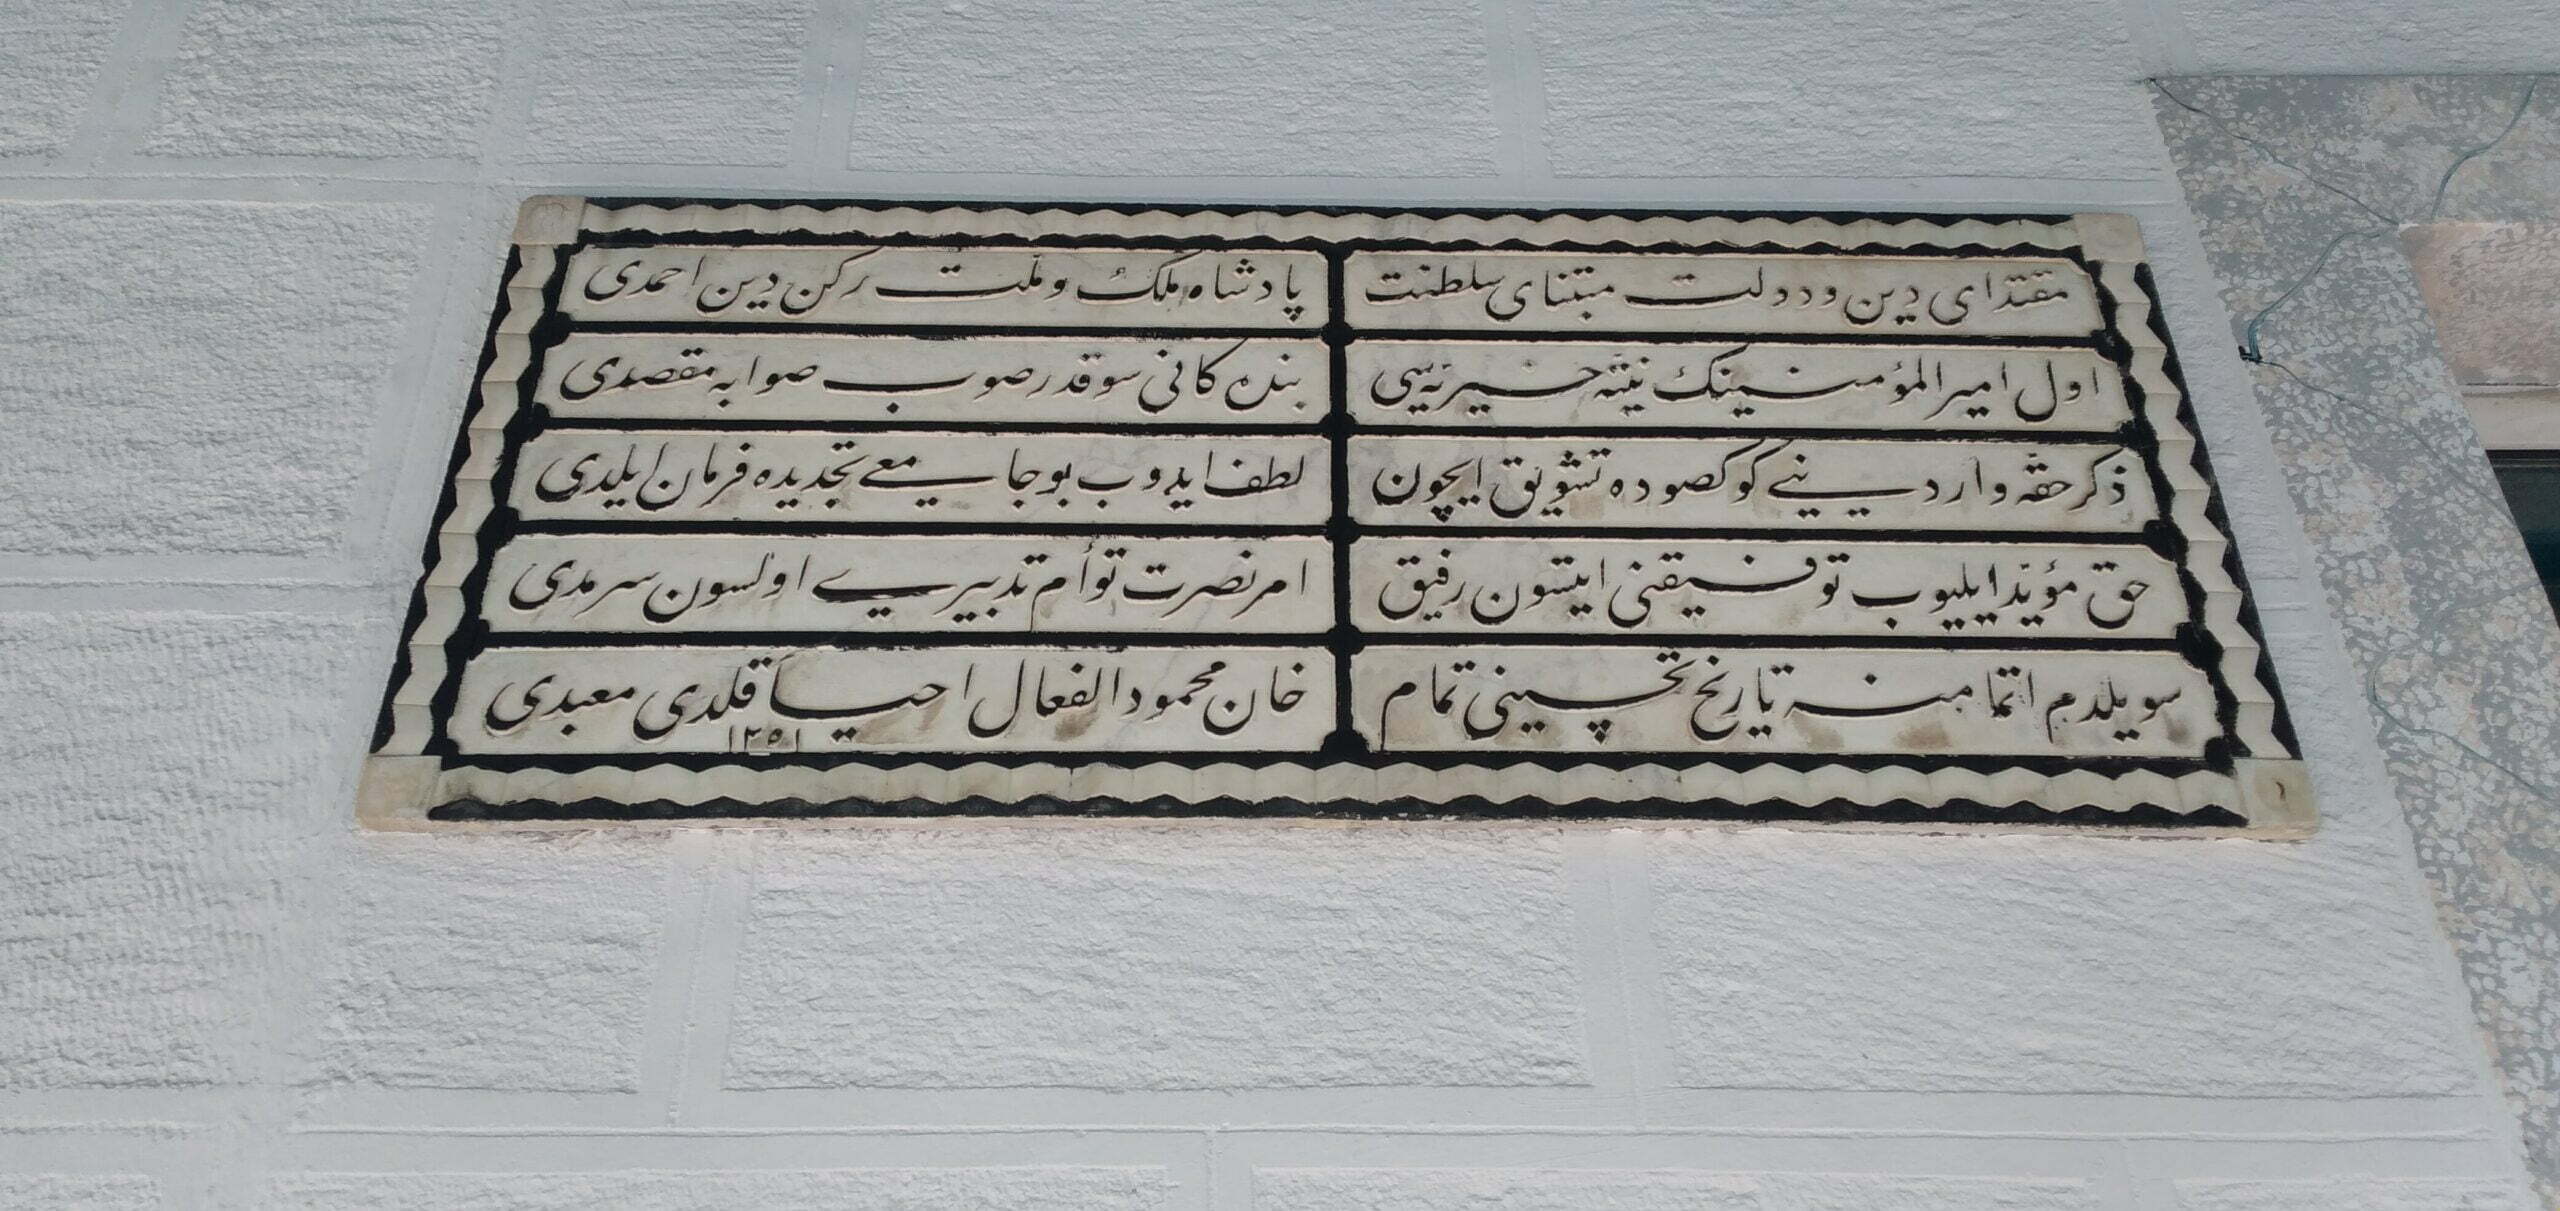 مقتدای دین و دولت مبتنای سلطنت
پادشاه ملك و ملت ركن دین احمدی
اول امیر المؤمنینك نیته خیر نیتی
بنده كانی سوقدر صوب صوابه مقصدی
ذكر حقه واردیینی كوكصوده تشویق ایچون
لطف ایدوب بو جامعی تجدیده فرمان ایلدی
حق مؤید ایلیوب توفیقنی ایتسون رفیق
امر نصرت توأم تدبیری اولسون سرمدی
سویلدم اتمامنه تاریخ تحسینی تمام
خان محمود الفعال احیا قلدی معبدی
١٢٥١